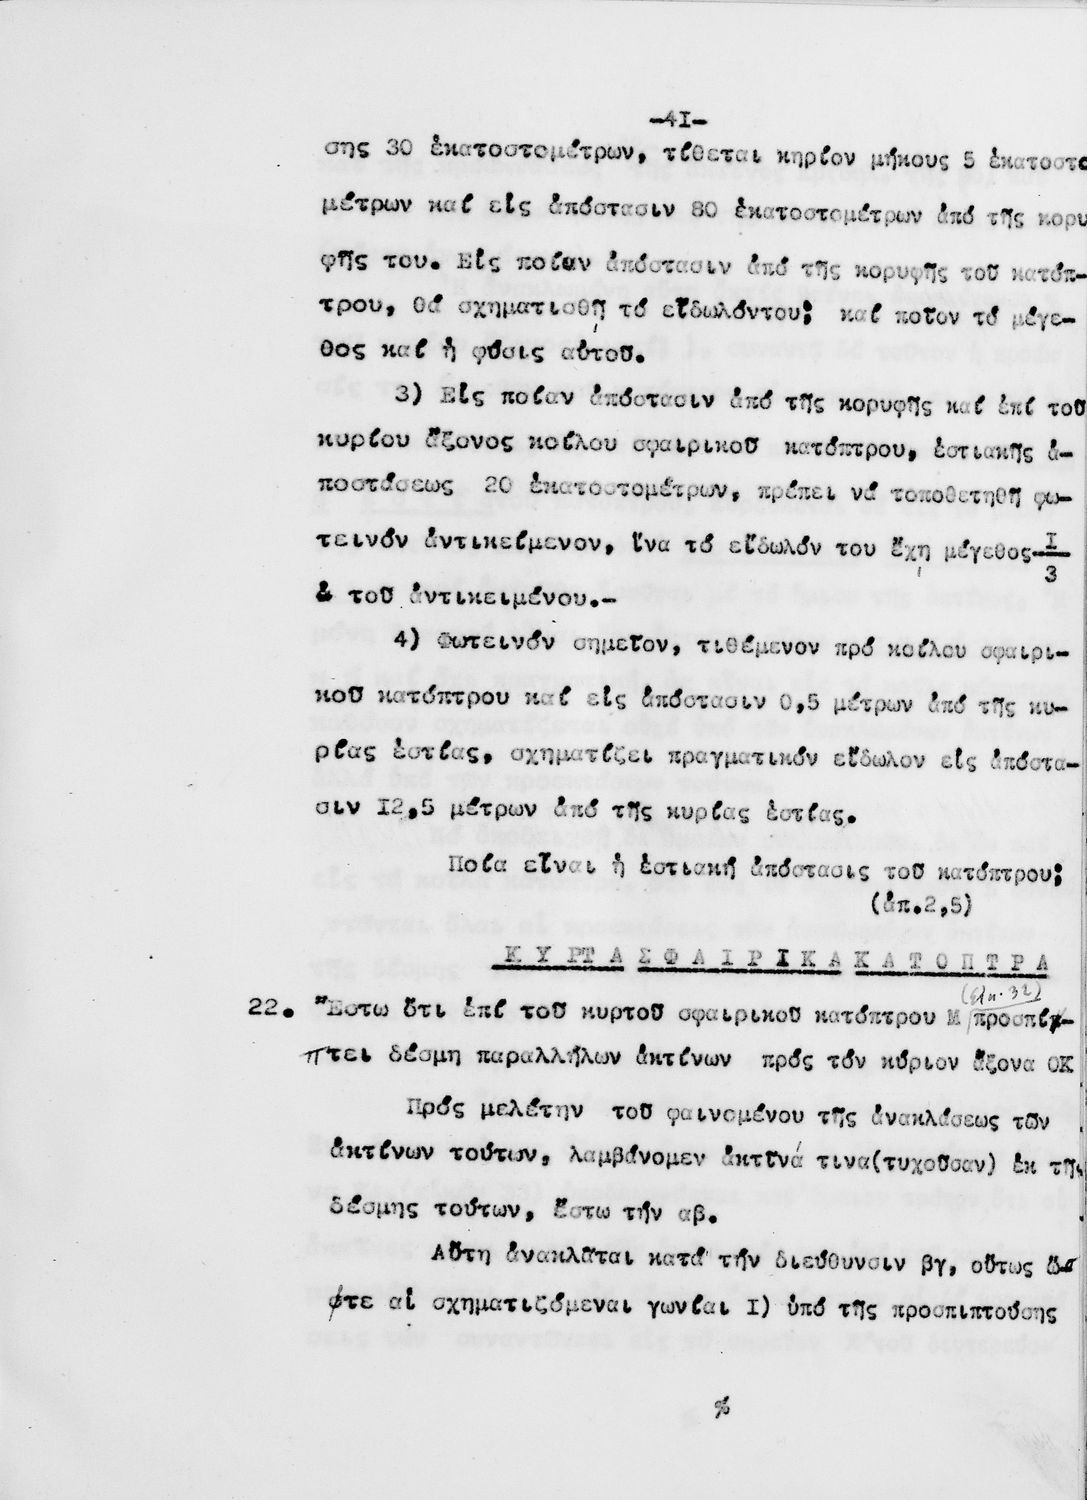 -41-
σης 30 ἑκατοστομέτρων, τίθεται κηρίον μήκους 5 ἑκατοστο
μέτρων καί εἰς ἀπόστασιν 80 ἑκατοστομέτρων ἀπό τῆς κορυ
φῆς του. Εἰς ποίαν ἀπόστασιν ἀπό τῆς κορυφῆς τοῦ κατόπ-
τρου, θά σχηματισθῇ τό εἴδωλόντου; καί ποῖον τό μέγε-
θος καί ἡ φύσις αὐτοῦ.
3) Εἰς ποίαν ἀπόστασιν ἀπό τῆς κορυφῆς καί ἐπί τοῦ
κυρίου ἄξονος κοίλου σφαιρικοῦ κατόπτρου, ἑστιακῆς ἀ-
ποστάσεως 20 ἑκατοστομέτρων, πρέπει νά τοποθετηθῇ φω-
τεινόν ἀντικείμενον, ἵνα τό εἴδωλόν του ἔχῃ μέγεθος 1/3
τοῦ ἀντικειμένου.-
4) Φωτεινόν σημεῖον, τιθέμενον πρό κοίλου σφαιρι-
κοῦ κατόπτρου καί εἰς ἀπόστασιν 0,5 μέτρων ἀπό τῆς κυ-
ρίας ἑστίας, σχηματίζει πραγματικόν εἴδωλον εἰς ἀπόστα-
σιν 12,5 μέτρων ἀπό τῆς κυρίας ἑστίας.
Ποία εἶναι ἡ ἑστιακή ἀπόστασις τοῦ κατόπτρου;
(ἀπ.2,5)
ΚΥΡΤΑ ΣΦΑΙΡΙΚΑ ΚΑΤΟΠΤΡΑ
(Εἰκ. 32)
22. Ἔστω ὅτι ἐπί τοῦ κυρτοῦ σφαιρικοῦ κατόπτρου Μ προσπί-
πτει δέσμη παραλλήλων ἀκτίνων πρός τόν κύριον ἄξονα ΟΚ
Πρός μελέτην τοῦ φαινομένου τῆς ἀνακλάσεως τῶν
ἀκτίνων τούτων, λαμβάνομεν ἀκτῖνά τινα(τυχοῦσαν) ἐκ τῆς
δέσμης τούτων, ἔστω τήν αβ.
Αὕτη ἀνακλᾶται κατά τήν διεύθυνσιν βγ, οὕτως ὥσ
τε αἱ σχηματιζόμεναι γωνίαι 1) ὑπό τῆς προσπιπτούσης
%